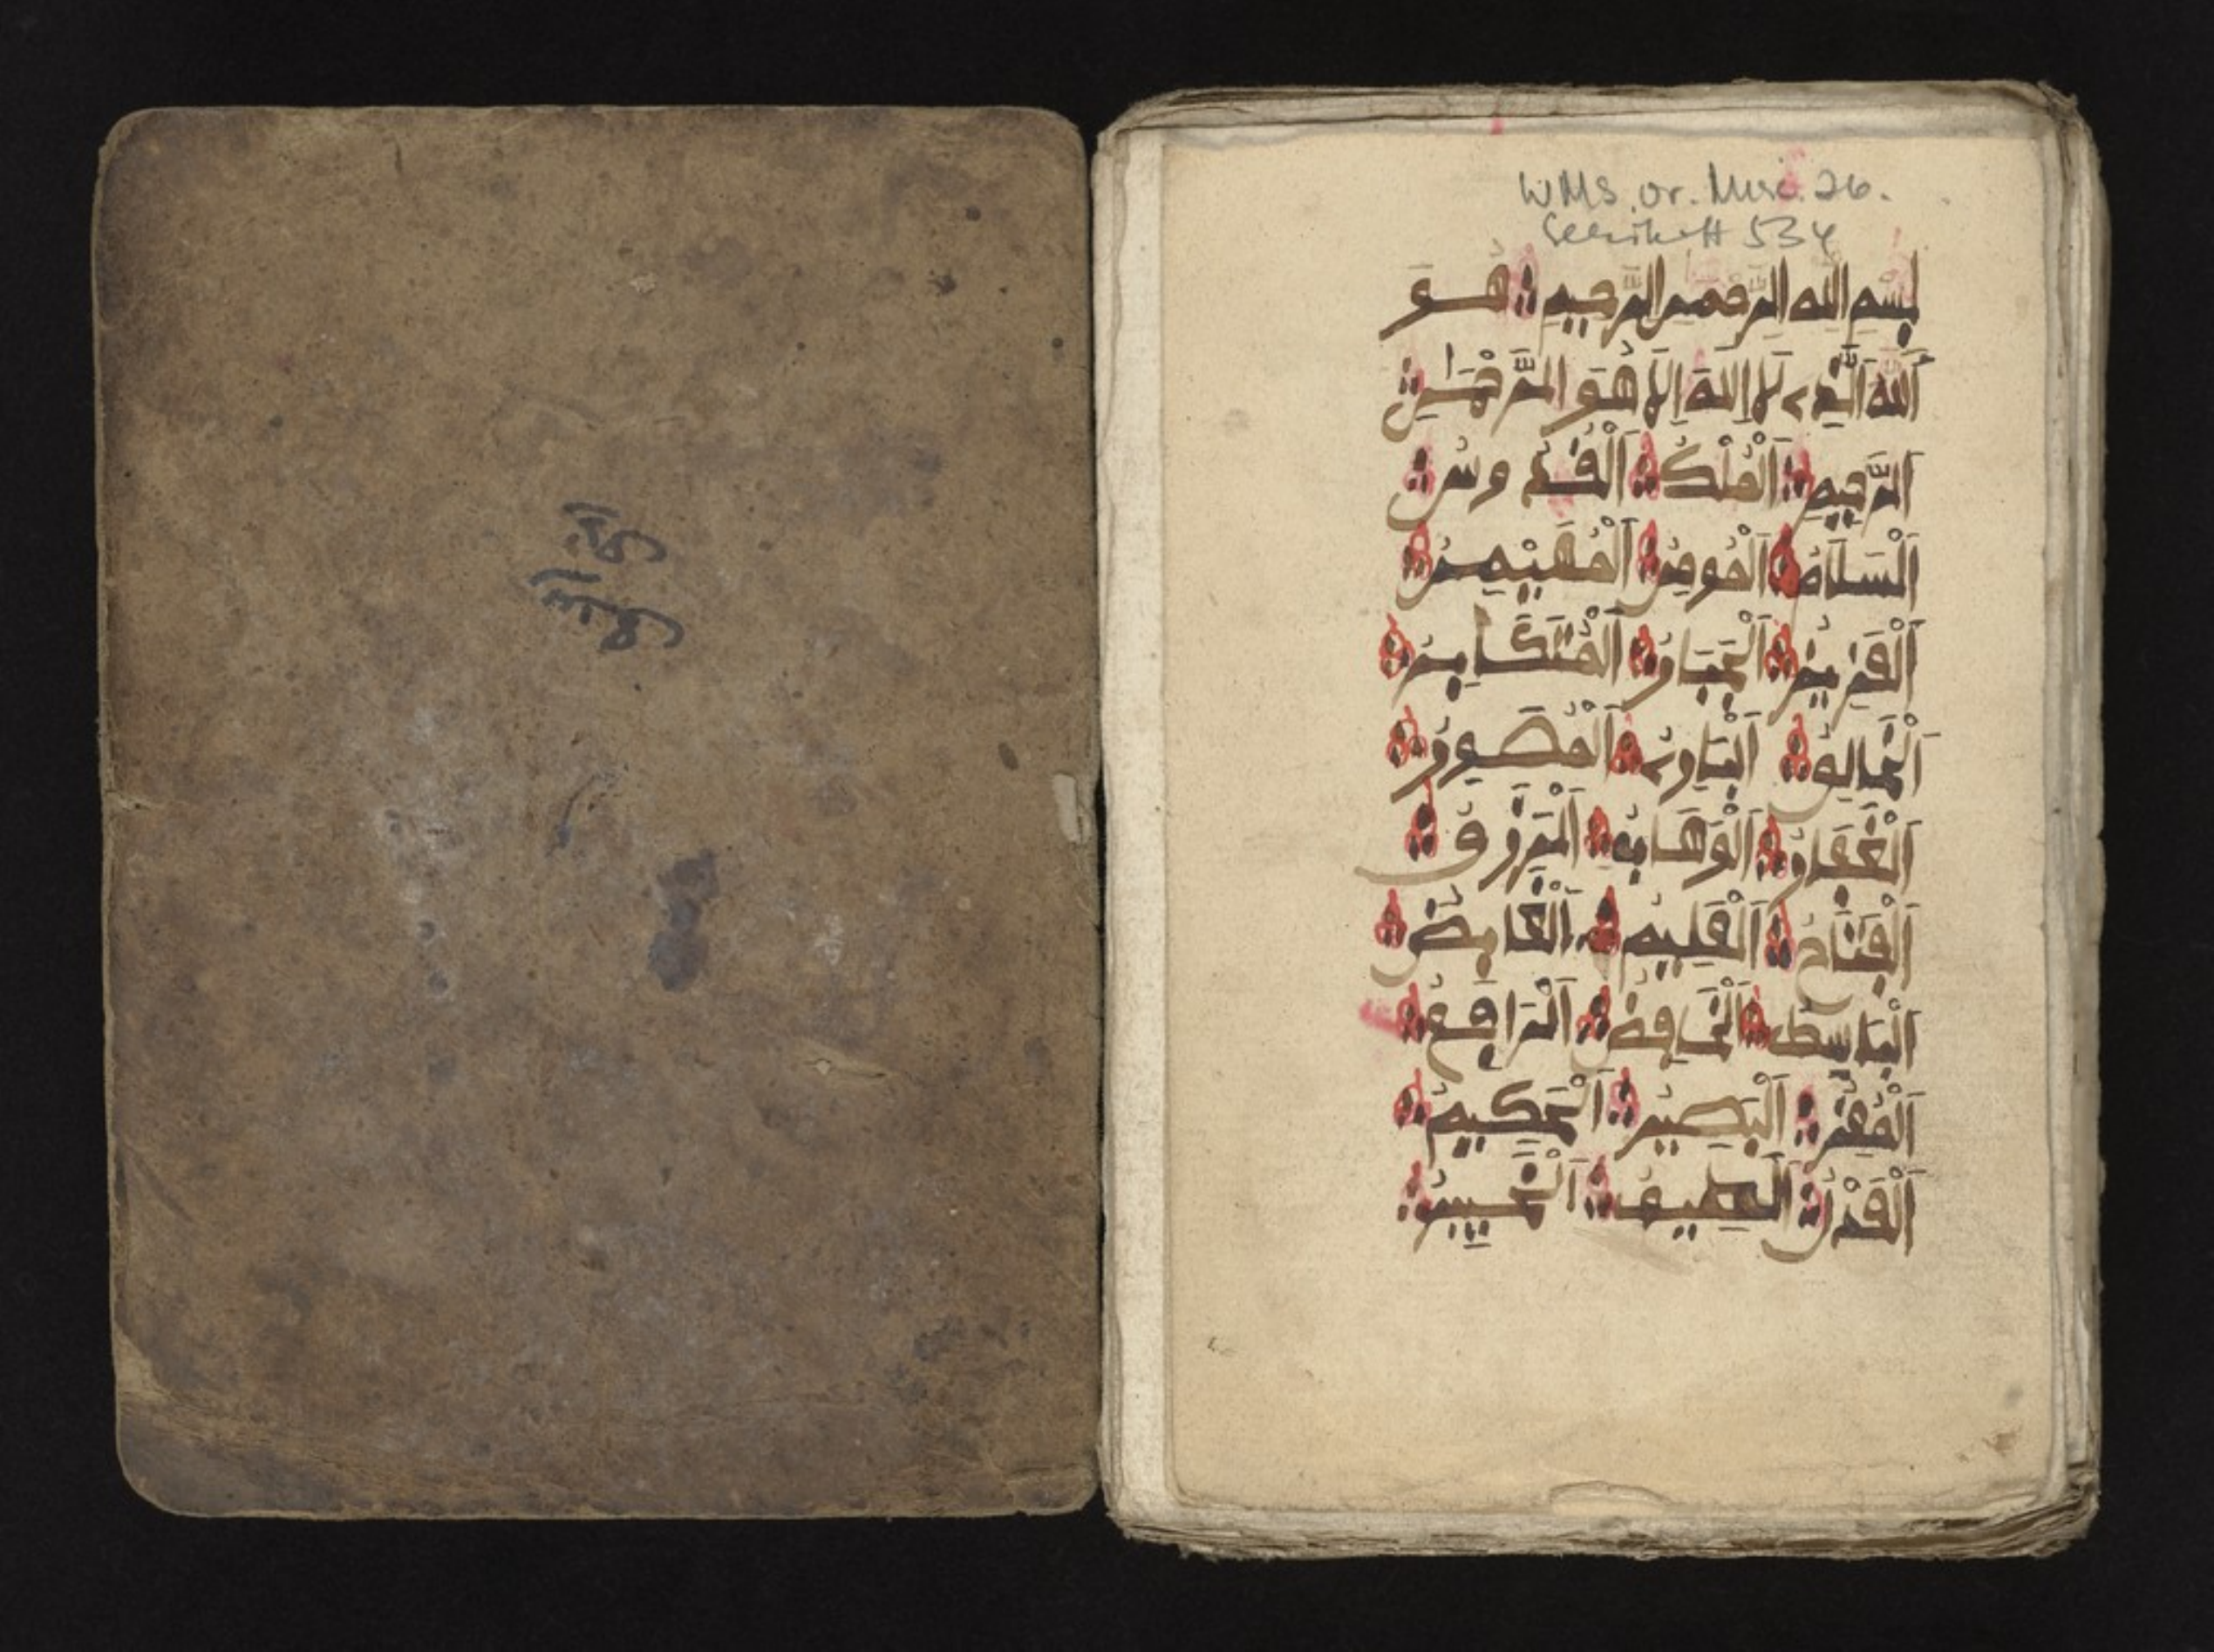 WMS. Or. Misc. 26.
بسم الله الرحمن الرحيم هو
الله الذي لا إله إلا هو الرحمن
الرحيم الملك القدوس
السلام المومن المهيمن
العزيز الجبار المتكابر
الخالق البارئ المصور
الغفار الوهاب الرزق
الفتاح العليم القابض
الباسط الخافض الرافع
المعز البصير الحكيم
العدل اللطيف الخبير